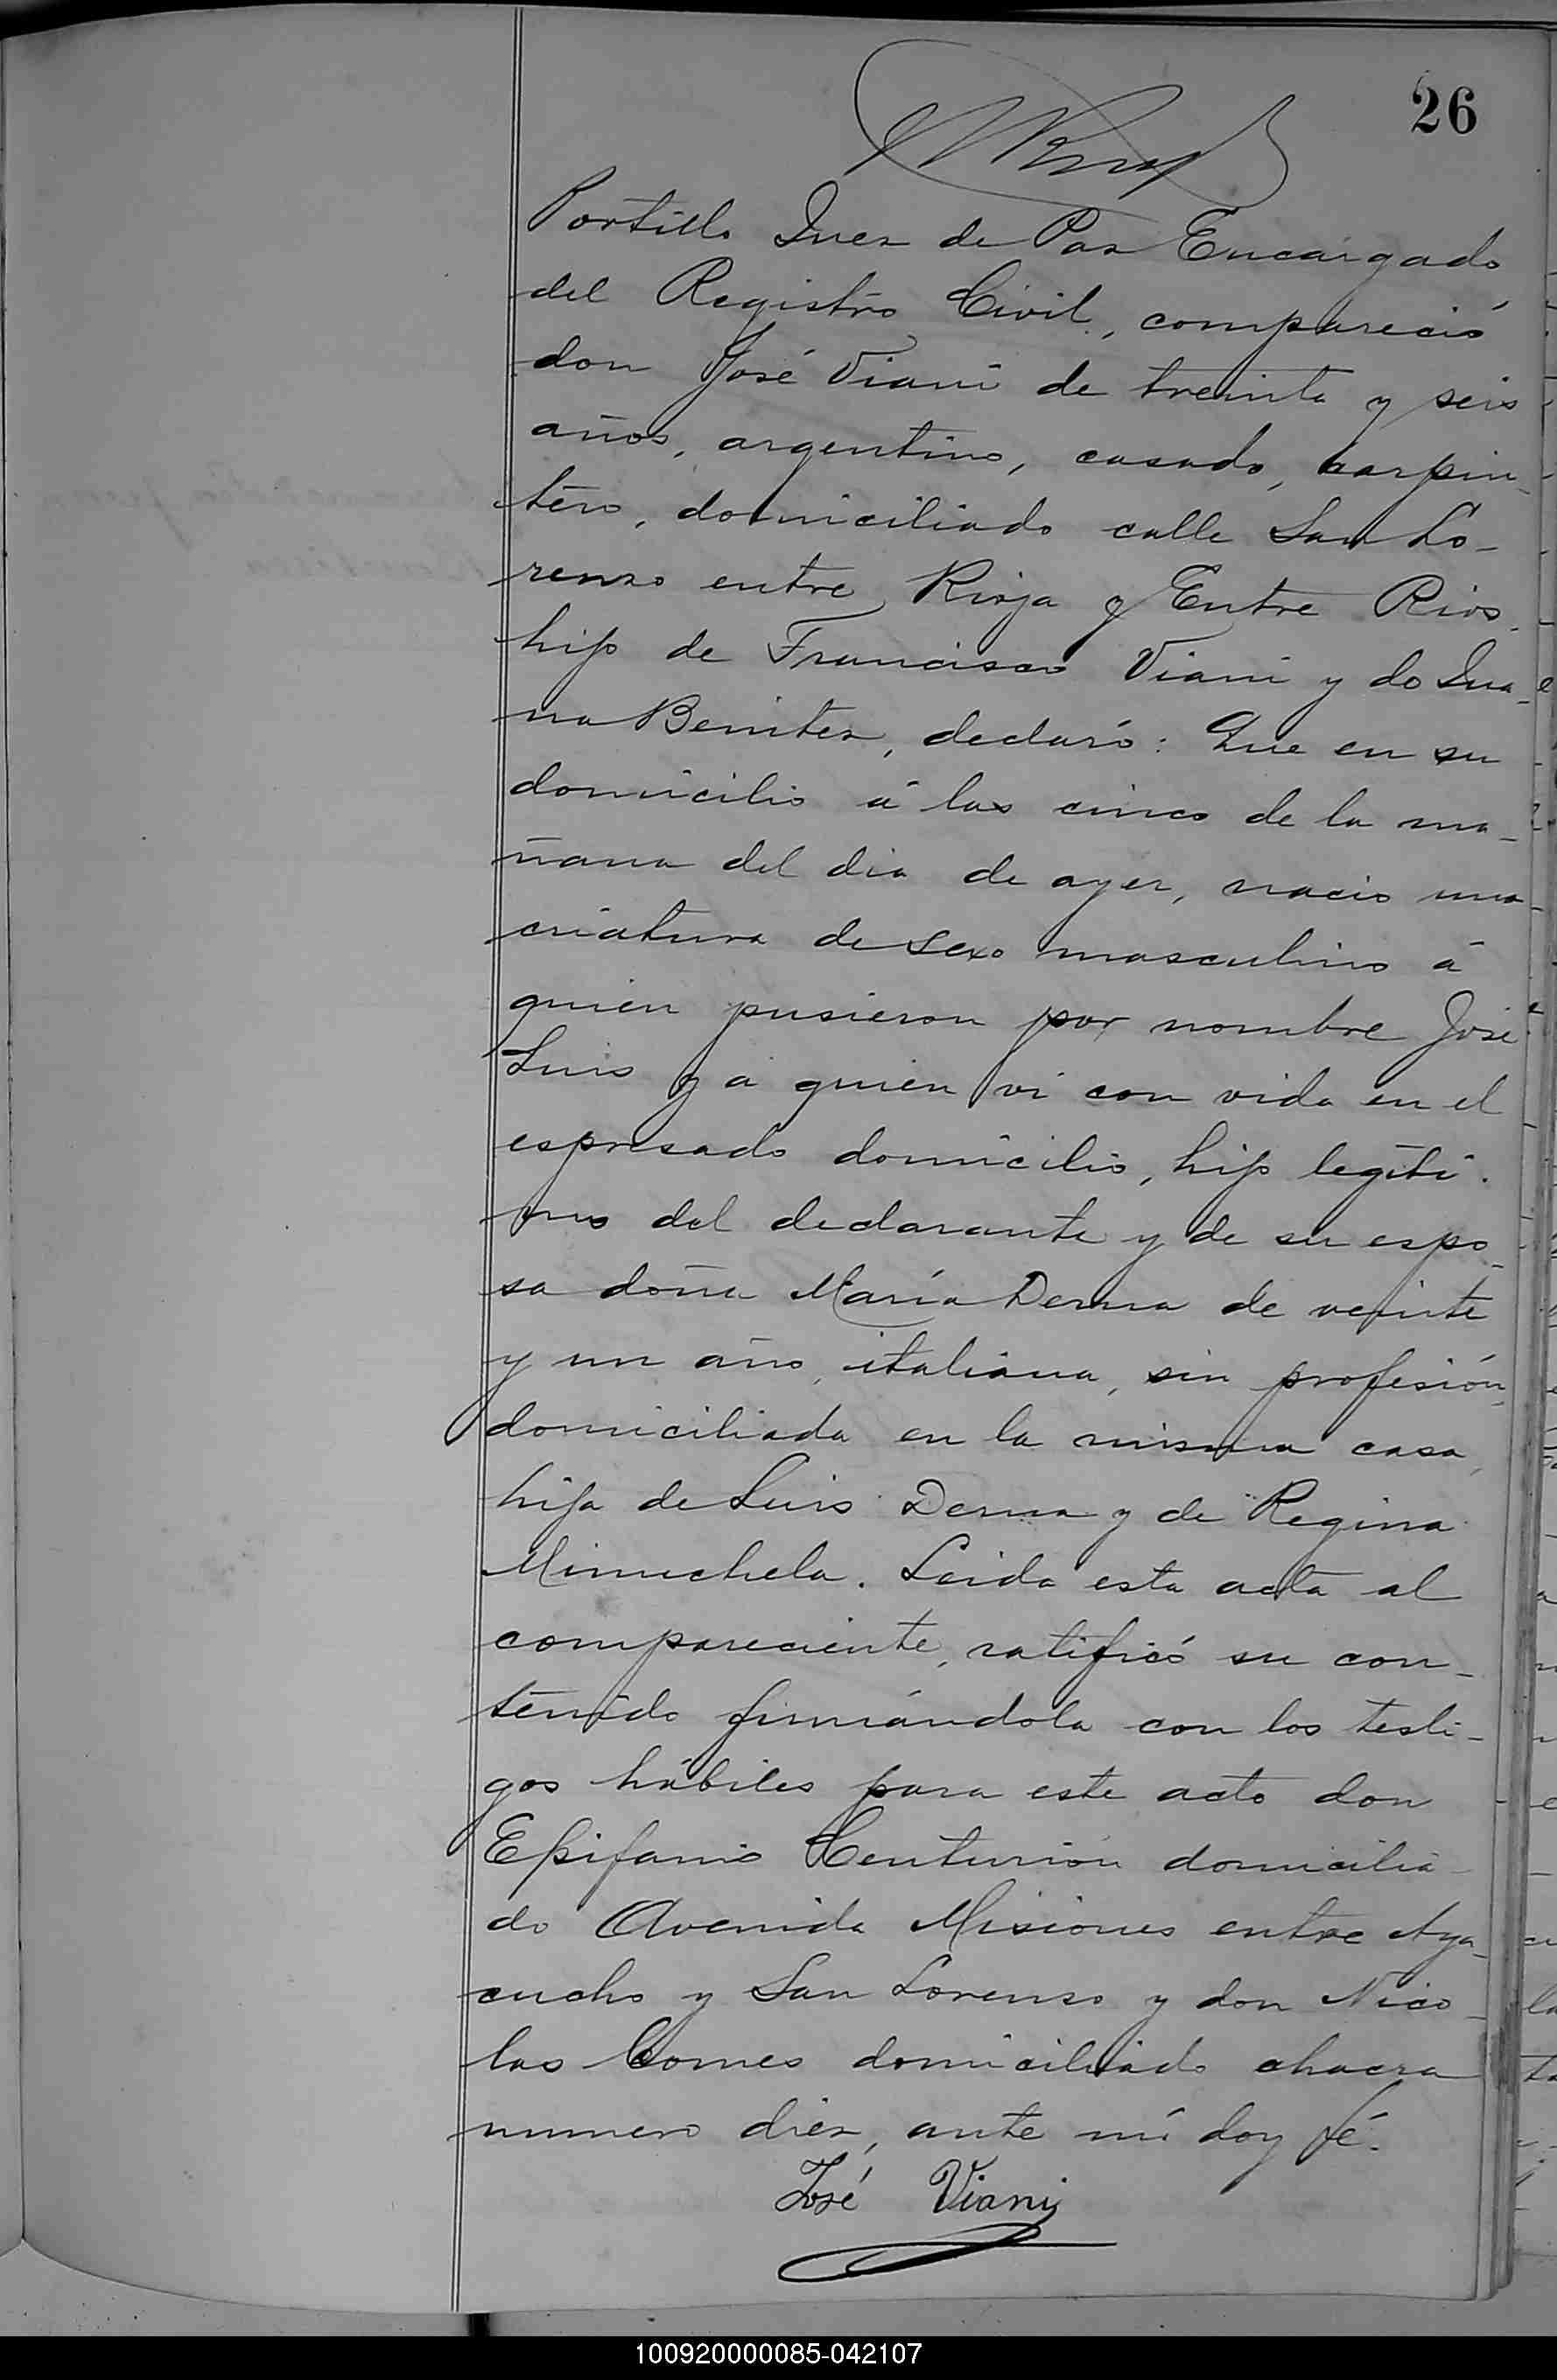 26
Portillo Juez de Paz Encargado
del Registro Civil, compareció
don José Viani de treinta y seis
años, argentino, casado, carpin-
tero, domiciliado calle San Lo-
renzo entre Rioja y Entre Rios,
hijo de Francisco Viani y de Jua-
na Benitez, declaró: Que en su
domicilio á las cinco de la ma-
ñana del dia de ayer, nació una
criatura de sexo masculino á
quien pusieron por nombre José
Luis y á quien vi con vida en el
espresado domicilio, hijo legíti-
mo del declarante y de su espo-
sa doña María Derna de veinte
y un año, italiana, sin profesión,
domiciliada en la misma casa,
hija de Luis Derna y de Regina
Minuchela. Leida esta acta al
compareciente, ratificó su con-
tenido firmándola con los testi-
gos hábiles para este acto don
Epifanio Centurión domicilia-
do Avenida Misiones entre Aya-
cucho y San Lorenzo y don Nico-
las Comes domiciliado chacra
numero diez, ante mí doy fé.
José Viani
100920000085-042107